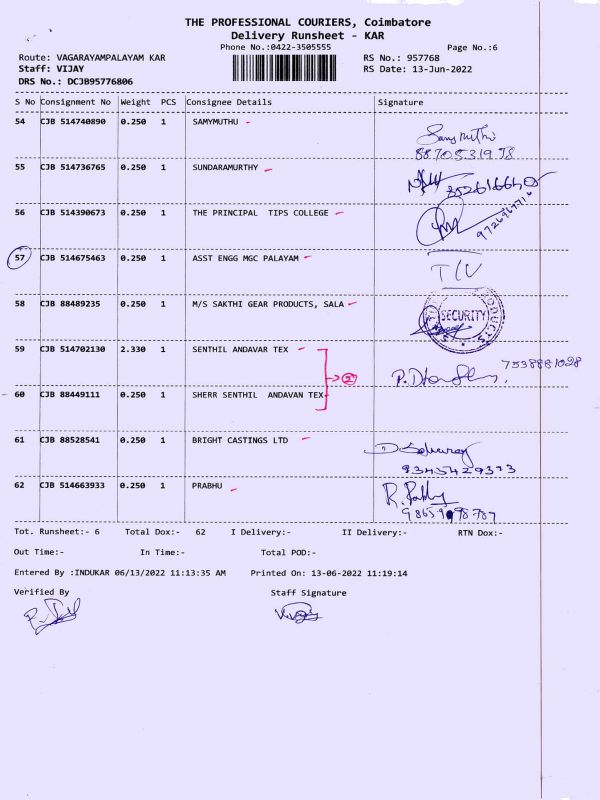 THE PROFESSIONAL COURIERS, Coimbatore
Delivery Runsheet - KAR
Phone No.:0422-3505555 Page No.:6
Route: VAGARAYAMPALAYAM KAR RS No.: 957768
Staff: VIJAY RS Date: 13-Jun-2022
DRS No.: DCJB95776806
S No Consignment No Weight PCS Consignee Details Signature
54 CJB 514740890 0.250 1 SAMYMUTHU
Samymuthu
8870531978
55 CJB 514736765 0.250 1 SUNDARAMURTHY
56 CJB 514390673 0.250 1 THE PRINCIPAL TIPS COLLEGE
57 CJB 514675463 0.250 1 ASST ENGG MGC PALAYAM
58 CJB 88489235 0.250 1 M/S SAKTHI GEAR PRODUCTS, SALA
SECURITY
59 CJB 514702130 2.330 1 SENTHIL ANDAVAR TEX
7538881028
2
60 CJB 88449111 0.250 1 SHERR SENTHIL ANDAVAN TEX
61 CJB 88528541 0.250 1 BRIGHT CASTINGS LTD
62 CJB 514663933 0.250 1 PRABHU
Tot. Runsheet:- 6 Total Dox:- 62 I Delivery:- II Delivery:- RTN Dox:-
Out Time:- In Time:- Total POD:-
Entered By :INDUKAR 06/13/2022 11:13:35 AM Printed On: 13-06-2022 11:19:14
Verified By Staff Signature